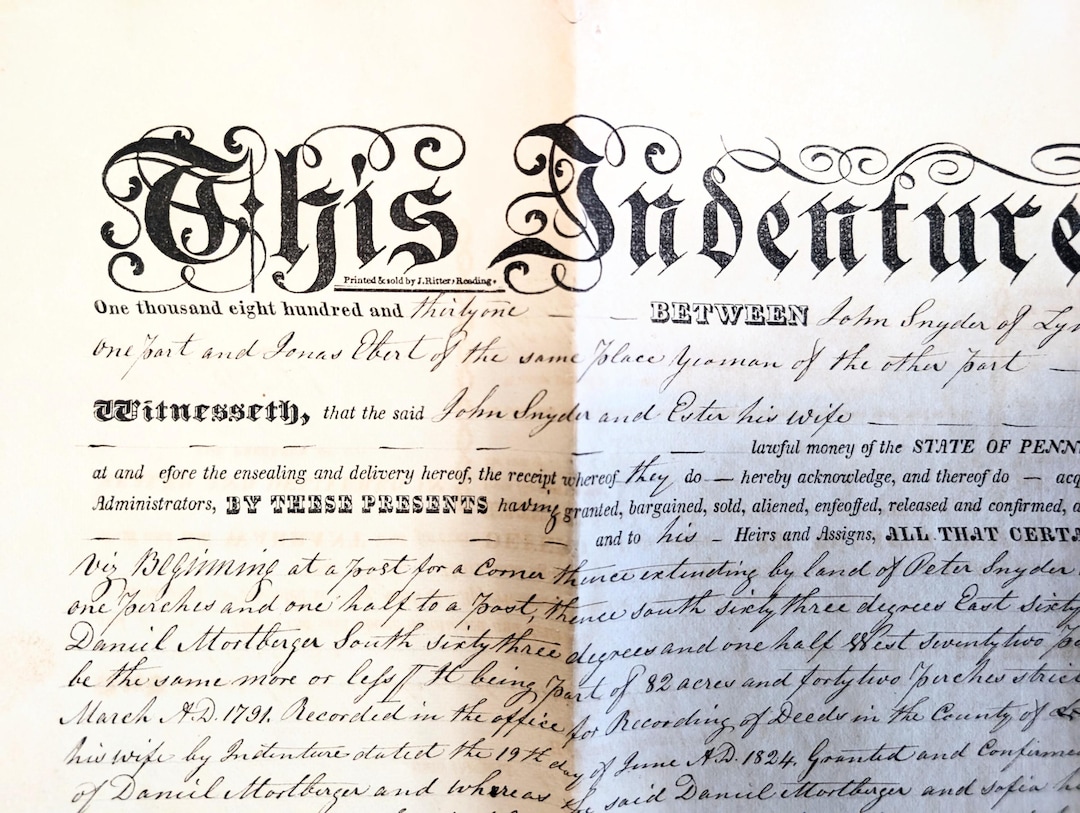 This Indenture
Printed & sold by J. Ritter, Reading.
One thousand eight hundred and thirty one BETWEEN John Snyder of
one part and Jonas Ebert of the same place Yeoman of the other part
Witnesseth, that the said John Snyder and Ester his wife
lawful money of the STATE OF PENN
at and efore the ensealing and delivery hereof, the receipt whereof they do hereby acknowledge, and thereof do acq
Administrators, BY THESE PRESENTS having granted, bargained, sold, aliened, enfeoffed, released and confirmed, a
and to his Heirs and Assigns, ALL THAT CERTA
viz Beginning at a post for a Corner thence extending by land of Peter Snyder
one perches and one half to a post, thence south sixty three degrees East sixty
Daniel Mortberger South sixty three degrees and one half West seventy two
be the same more or less It being part of 82 acres and forty two Perches strict
March A.D. 1791. Recorded in the office for Recording of Deeds in the County of
his wife by Indenture dated the 19th day of June A.D. 1824, Granted and Confirme
of Daniel Mortberger and whereas the said Daniel Mortberger and sofia